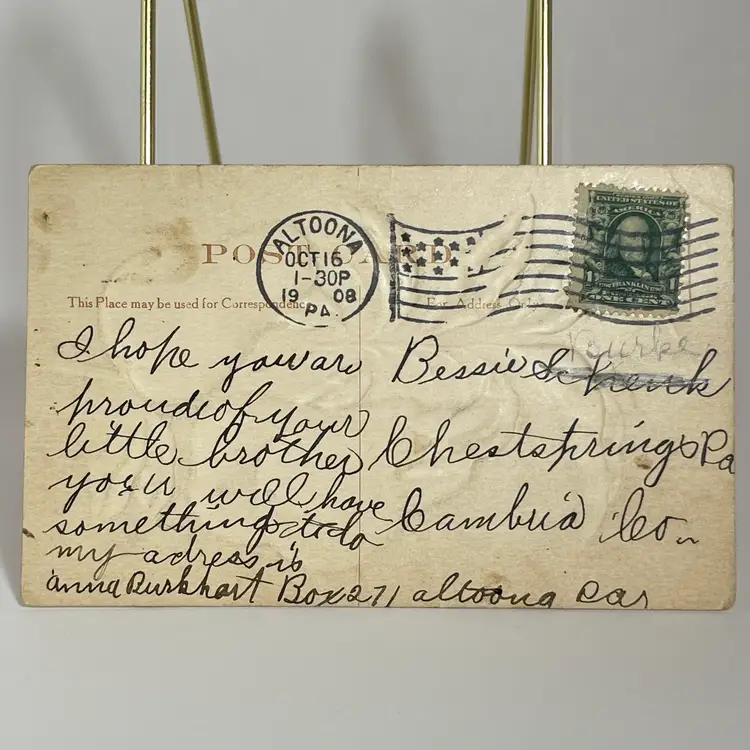 POST CARD
ALTOONA
OCT 16
1-30P
19 08
PA.
UNITED STATES OF
AMERICA
1 FRANKLIN 1
ONE CENT
This Place may be used for Correspondence
For Address Only
I hope you are
proude of your
little brother
you will have
something to do
my adress is
anna Burkhart Box 271 altoona Pa
Bessie Schenk
Chestsprings Pa
Cambria Co.